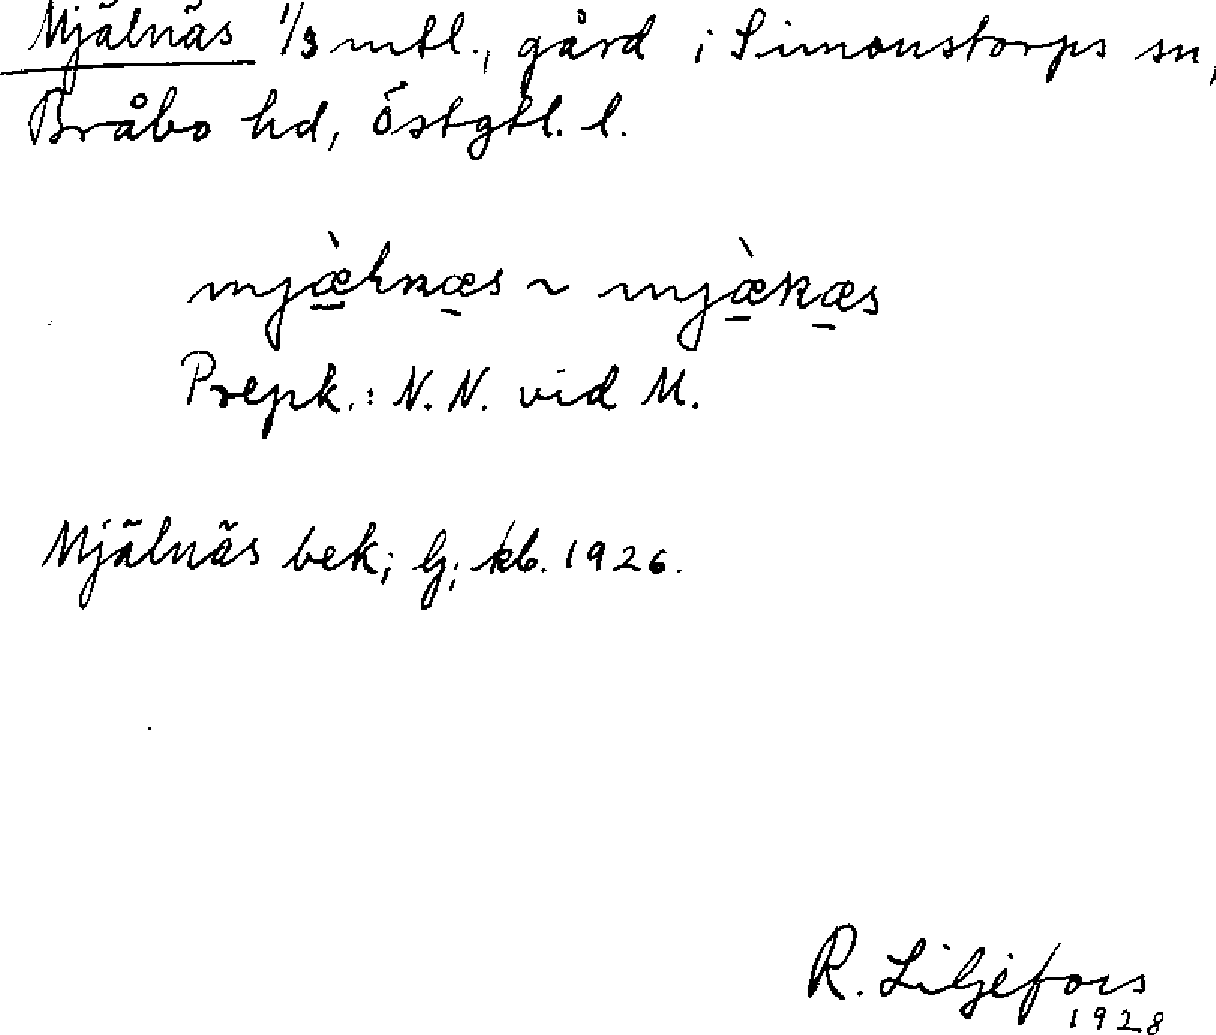 Mjälnäs 1/3 mtl., gård i Simonstorps sn,
Bråbo hd, Östgtl. l.
Prepk.: N. N. vid M.
Mjälnäs bek; lj; kb. 1926.
R. Liljefors
1928